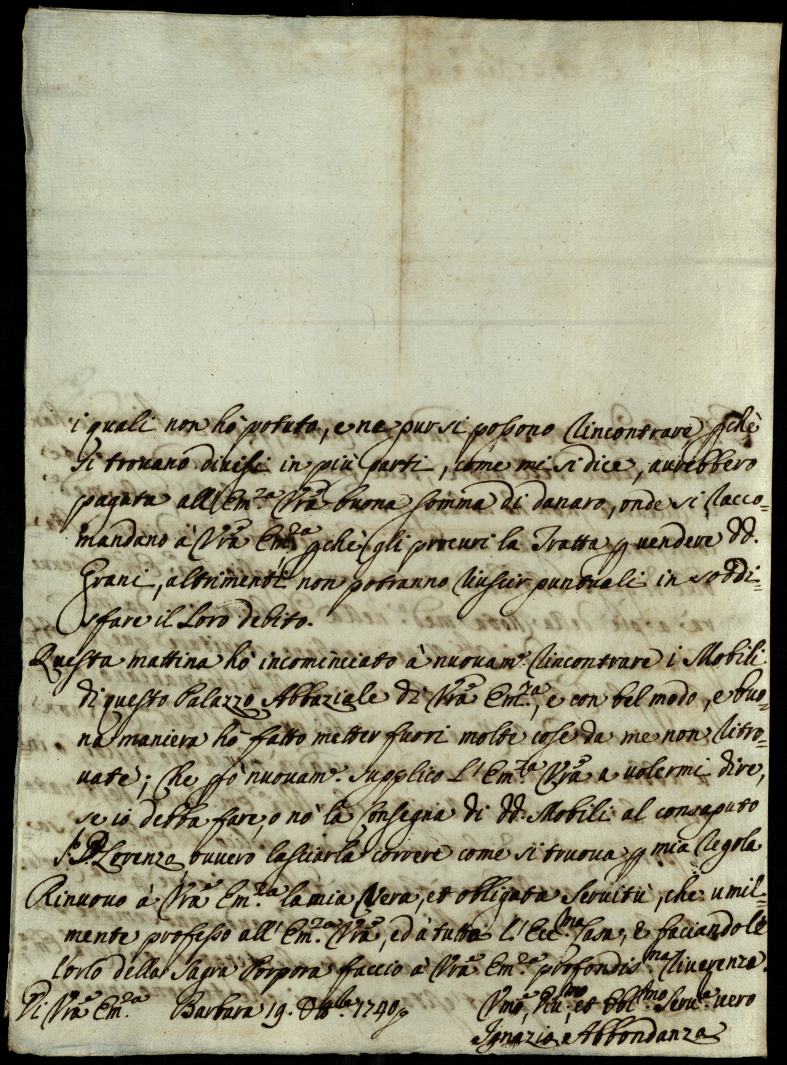 i quali non hò potuto, e ne pur si possono rincontrare p chè
si trovano divisi in più parti, come mi si dice, avrebbero
pagata all' Em.za Vrã buona somma di danaro, onde si racco=
mandano à Vrã Em.za p chè gli procuri la Tratta p vendere dd.
Grani, altrimenti non potranno riuscir puntuali in soddi=
sfare il Loro debito.
Questa mattina hò incominciato à nuovam.e rincontrare i Mobili
di questo Palazzo Abbaziale di Vrã Em.za, e con bel modo, e buo=
na maniera hò fatto metter fuori molte cose da me non ritro=
vate; che p ò nuovam.e supplico L' Em.za Vrã a volermi dire,
se io debba fare, o nò la consegna di dd. Mobili al consaputo
S.r D. Lorenzo, ovvero lasciarla correre come si truova p mia regola
Rinuovo à Vrã Em.za la mia vera, et obligata servitù, che umil=
mente professo all' Em.za Vrã, ed à tutta L' Ecc.ma Casa, e faciandole
l'orlo della Sagra Porpora faccio à Vrã Em.za profondis.ma riverenza.
Di Vrã Em.za Barbara 19. 1740
Vmo, et Obl.mo Serv.e vero
Ignazio Abbondanza